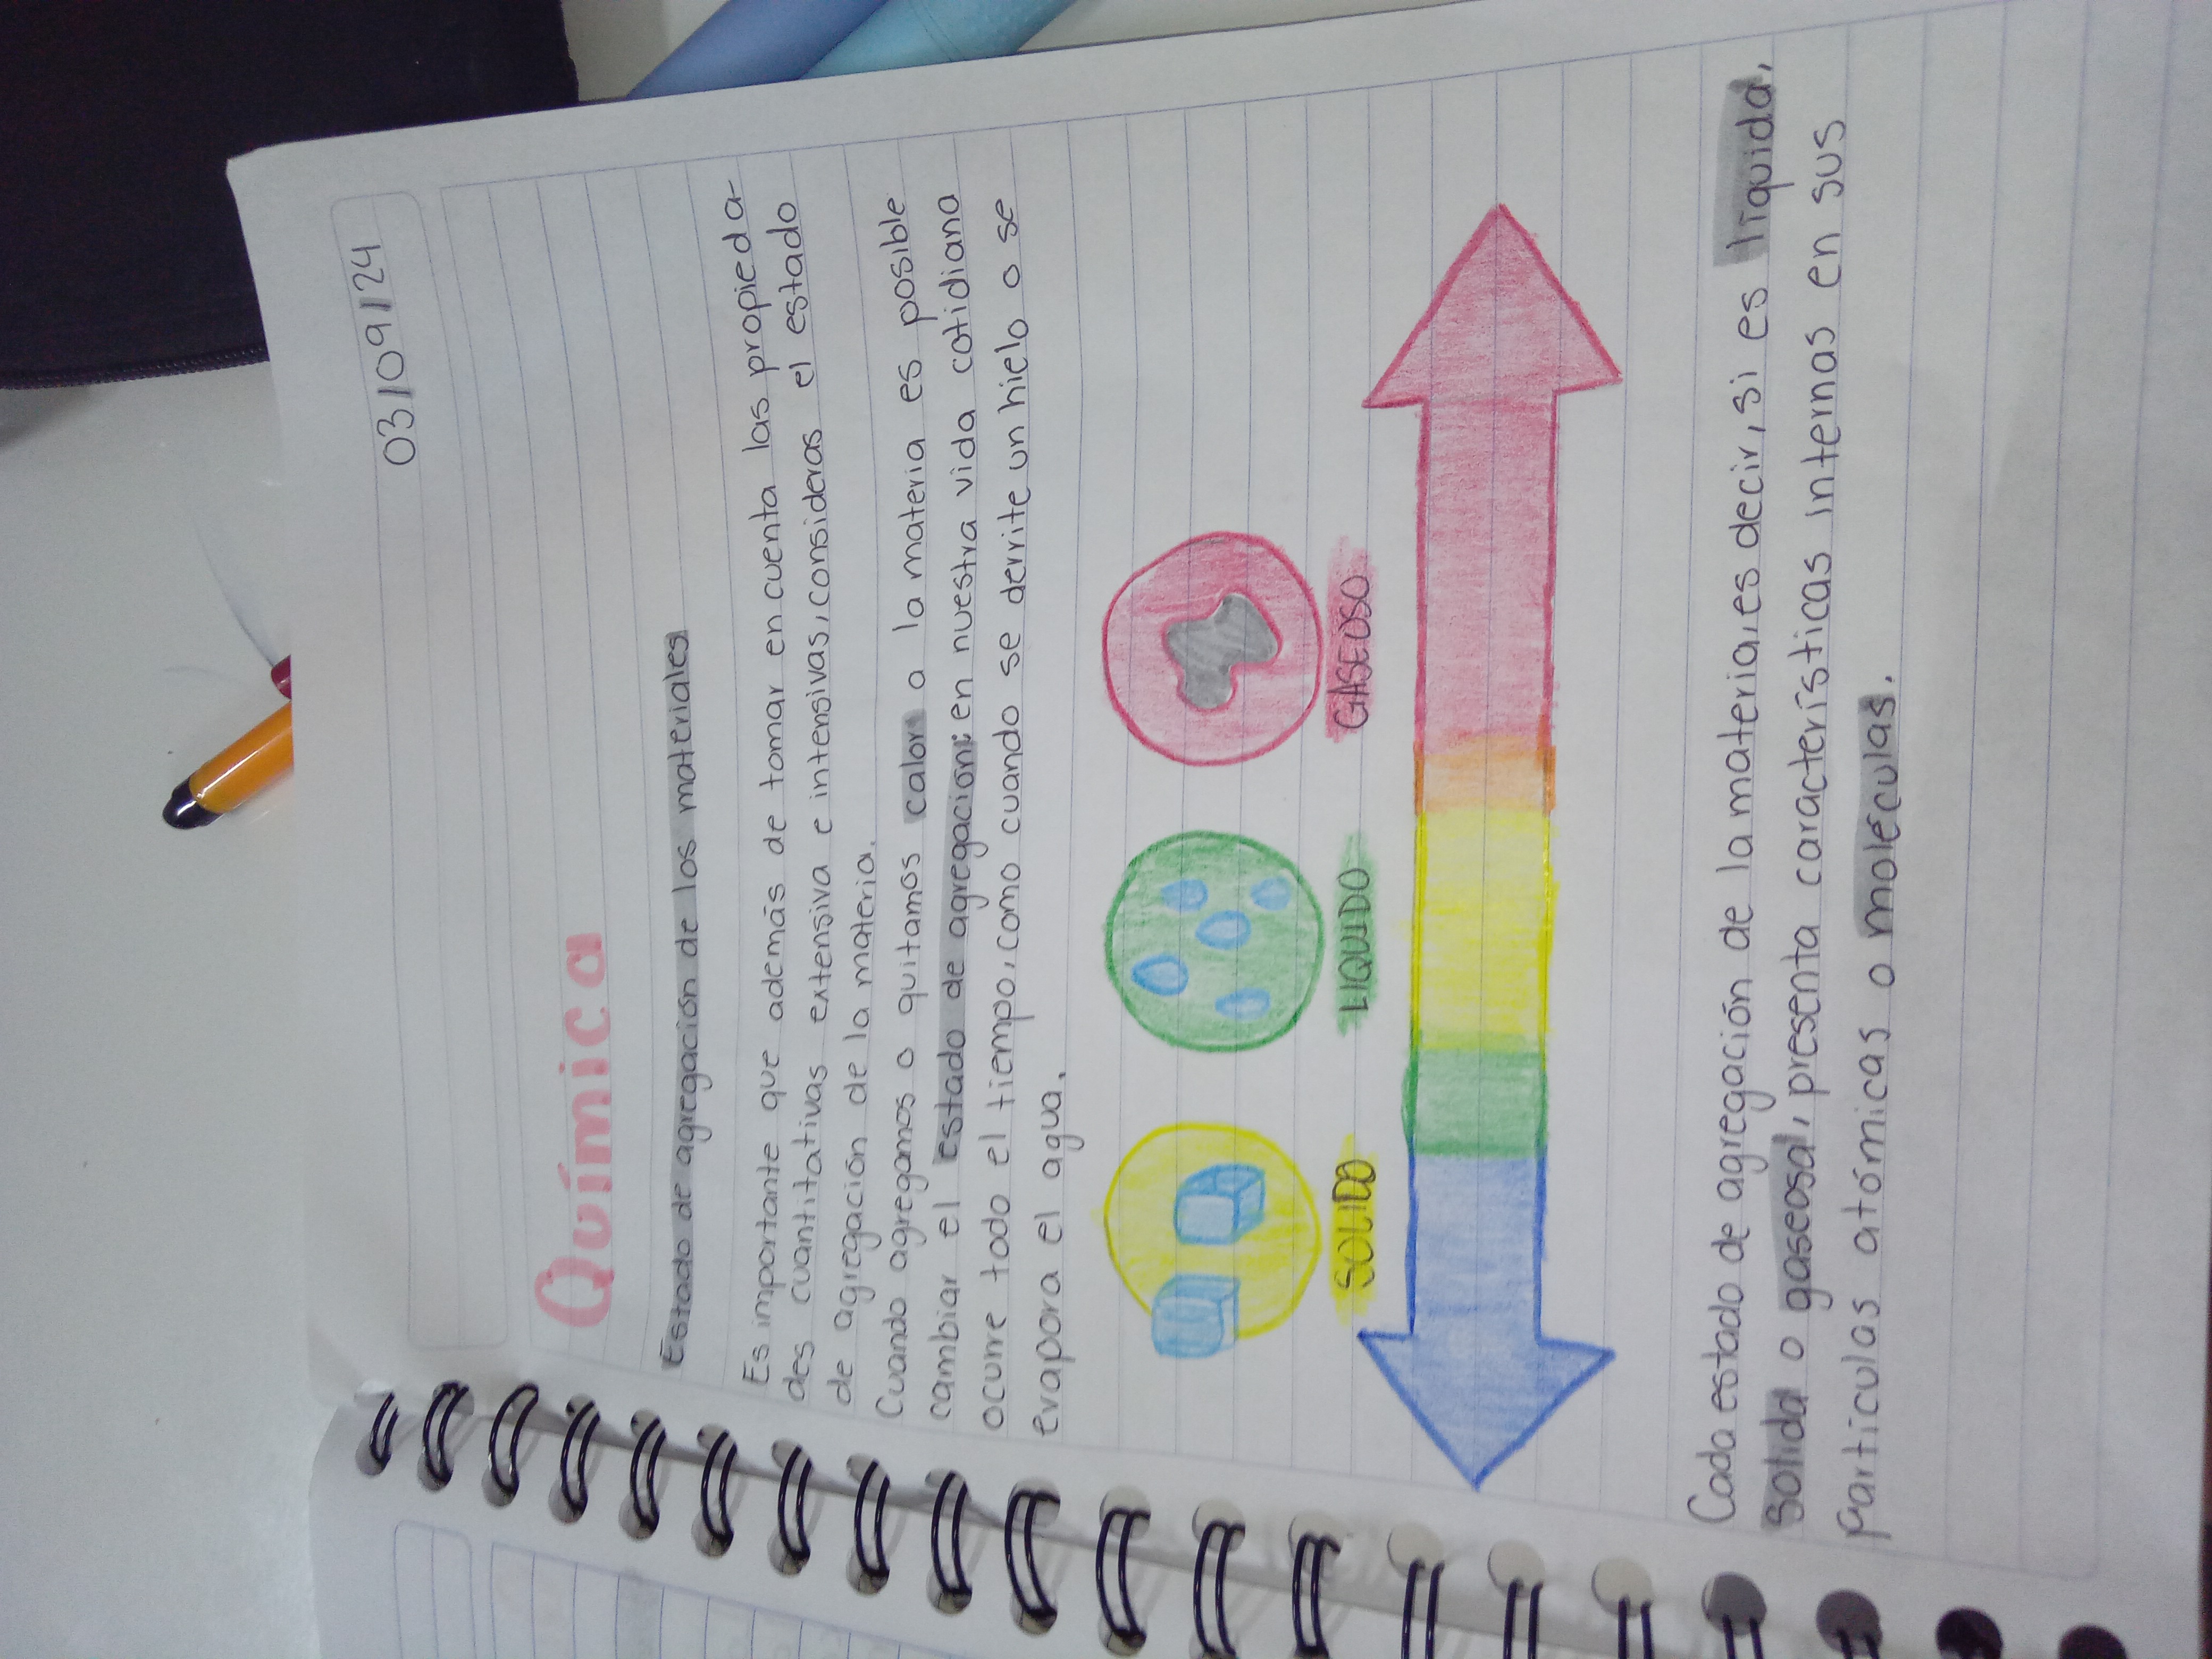 03/09/24
Química
Estado de agregación de los materiales
Es importante que además de tomar en cuenta las propieda-
des cuantitativas extensiva e intensivas, consideras el estado
de agregación de la materia.
Cuando agregamos o quitamos calor a la materia es posible
cambiar el estado de agregación; en nuestra vida cotidiana
ocurre todo el tiempo, como cuando se derrite un hielo o se
evapora el agua.
SOLIDO LIQUIDO GASEOSO
Cada estado de agregación de la materia, es decir, si es líquida,
solida o gaseosa, presenta características internas en sus
partículas atómicas o moléculas.